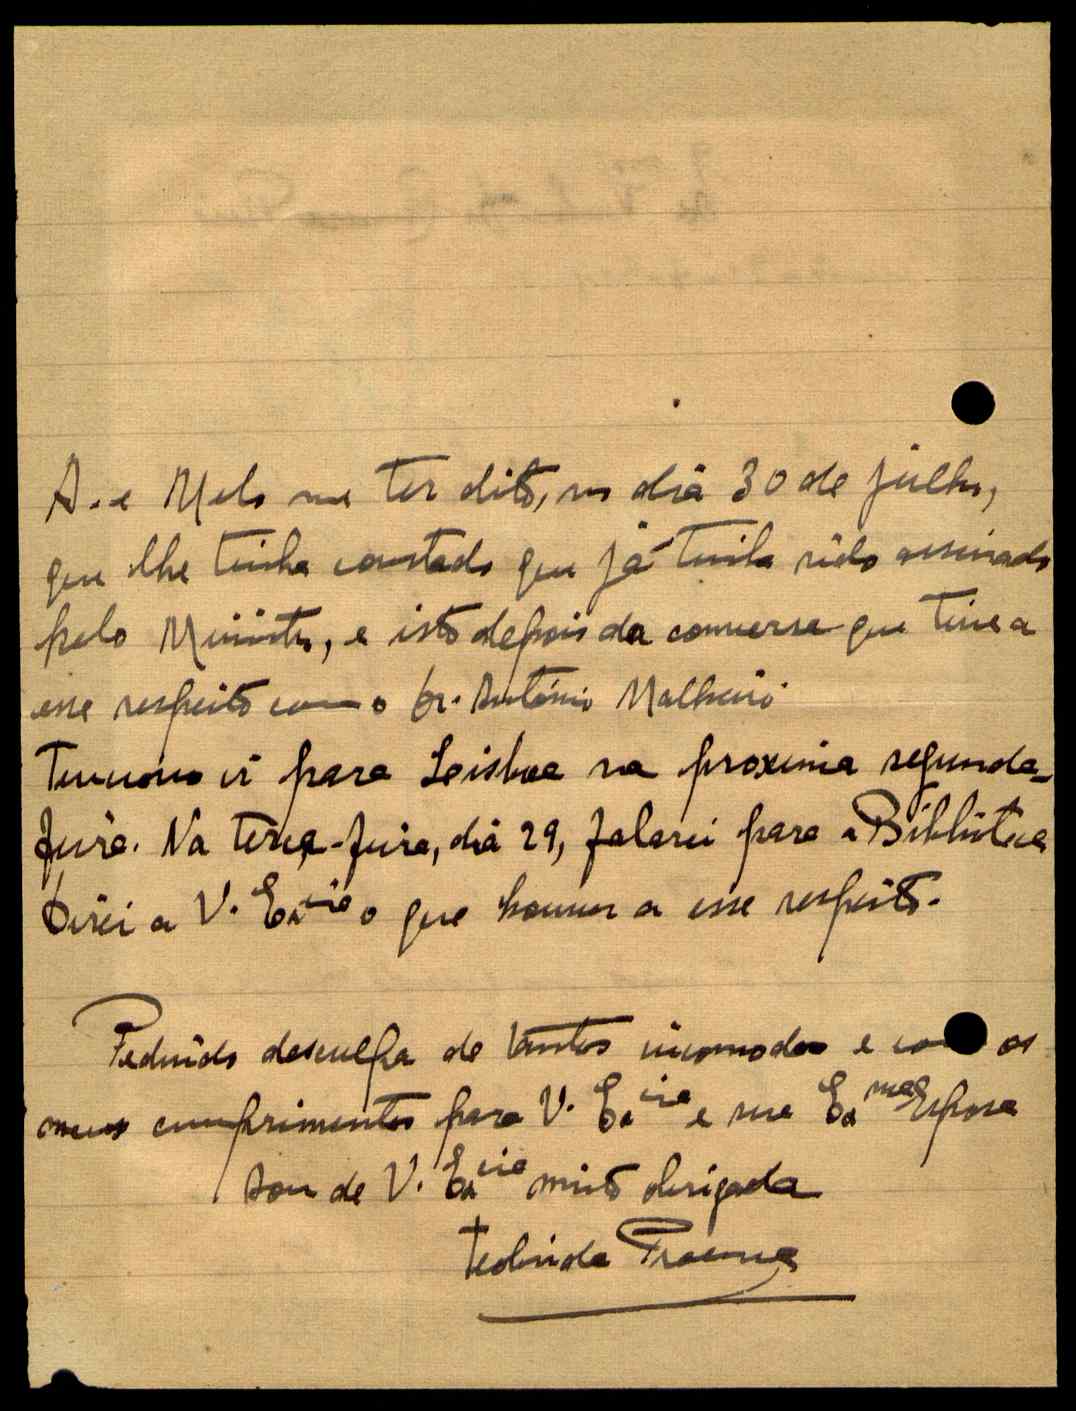 A. e Melo me ter dito, no dia 30 de julho,
que lhe tinha constado que já tinha sido assinado
pelo Ministro, e isto depois da conversa que tive a
esse respeito com o Dr. António Malheiro.
Tenciono ir para Leisboa na proxima segunda-
feira. Na terça-feira, dia 29, falarei para a Biblioteca
Direi a V. Exᶜⁱᵃ o que houver a esse respeito.
Pedindo desculpa de tantos incomodos e com os
meus cumprimentos para V. Exᶜⁱᵃ e sua Exᵐᵃ Esposa
Sou de V. Exᶜⁱᵃ muito obrigada